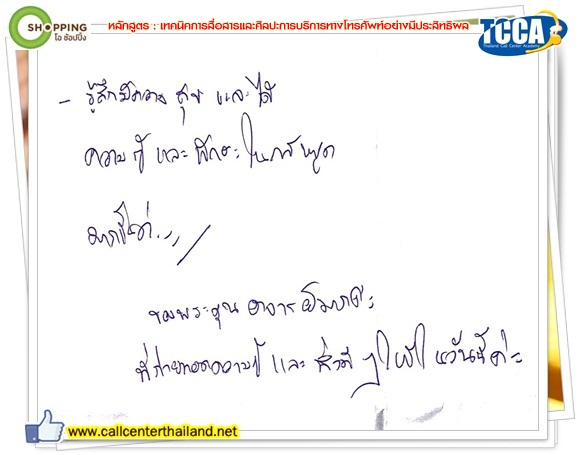 SHOPPING
โอ ช้อปปิ้ง
หลักสูตร : เทคนิคการสื่อสารและศิลปะการบริการทางโทรศัพท์อย่างมีประสิทธิผล
TCCA
Thailand Call Center Academy
- รู้สึกมีความสุข และได้
ความรู้ และทักษะในการพูด
มากขึ้นค่ะ
ขอบพระคุณ อาจารย์มากค่ะ
ที่ถ่ายทอดความรู้ และ สิ่งดีๆ ให้ในวันนี้ค่ะ
www.callcenterthailand.net